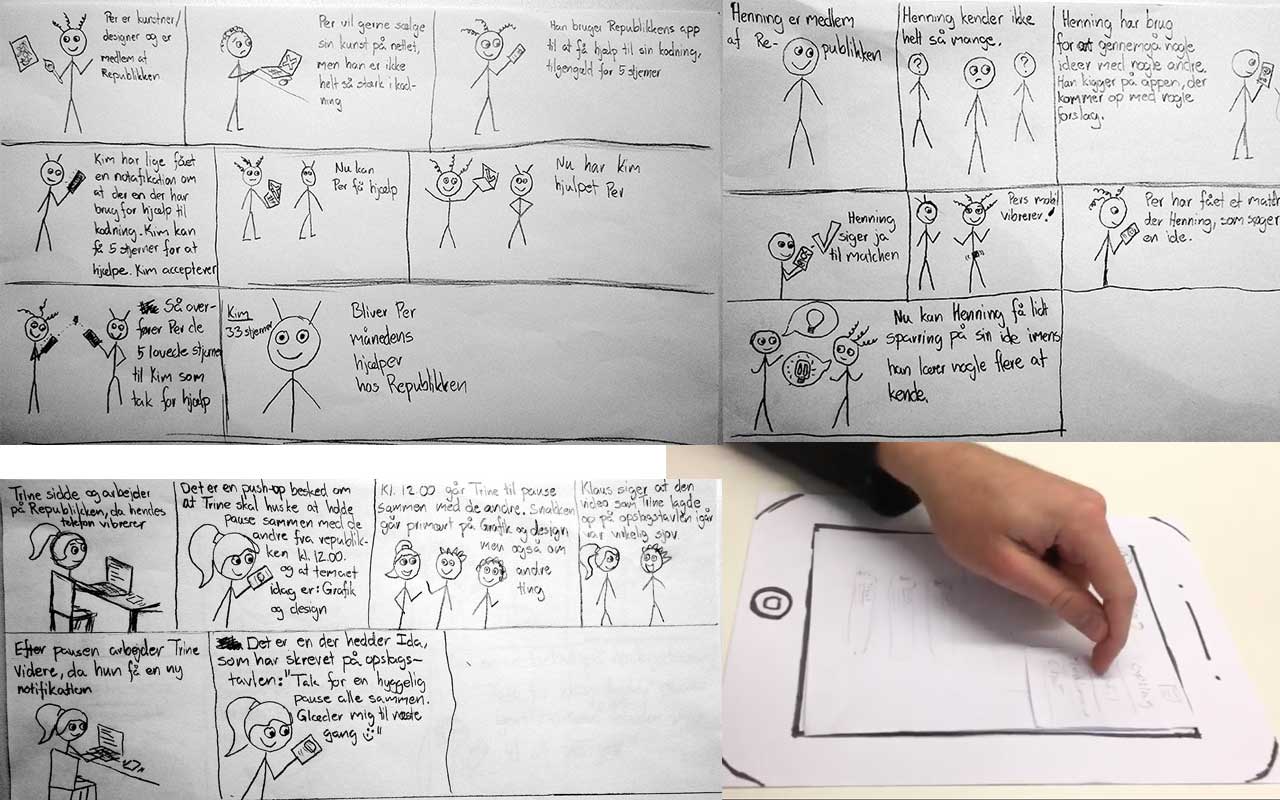 Per er kunstner/
designer og er
medlem af
Republikken
Per vil gerne sælge
sin kunst på nettet,
men han er ikke
helt så stærk i kod-
ning
Han bruger Republikkens app
til at få hjælp til sin kodning,
tilgengæld for 5 stjerner
Kim har lige fået
en notafikation om
at der en der har
brug for hjælp til
kodning. Kim kan
få 5 stjerner for at
hjælpe. Kim accepterer
Nu kan
Per få hjælp
Nu har Kim
hjulpet Per
Så over-
fører Per de
5 lovede stjerner
til Kim som
tak for hjælp
Kim
33 stjerner
Bliver Per
månedens
hjælper
hos Republikken
Henning er medlem
af Re- publikken
Henning kender ikke
helt så mange.
?
?
Henning har brug
for at gennemgå nogle
ideer med nogle andre.
Han kigger på appen, der
kommer op med nogle
forslag.
Henning
siger ja
til matchen
Pers mobil
vibrerer!
Per har fået et match
der Henning, som søger
en ide.
Nu kan Henning få lidt
sparring på sin ide imens
han lærer nogle flere at
kende.
Trine sidde og arbejder
på Republikken, da hendes
telefon vibrerer
Det er en push-op besked om
at Trine skal huske at holde
pause sammen med de
andre fra republik-
ken kl. 12.00.
og at temaet
idag er: Grafik
og design
Kl. 12.00 går Trine til pause
sammen med de andre. Snakken
går primært på Grafik og design
men også om
andre
ting
Klaus siger at den
video som Trine lagde
op på opslagstavlen igår
var virkelig sjov.
Efter pausen arbejder Trine
videre, da hun få en ny
notifikation
Det er en der hedder Ida,
som har skrevet på opslags-
tavlen: "Tak for en hyggelig
pause alle sammen.
Glæder mig til næste
gang :)"